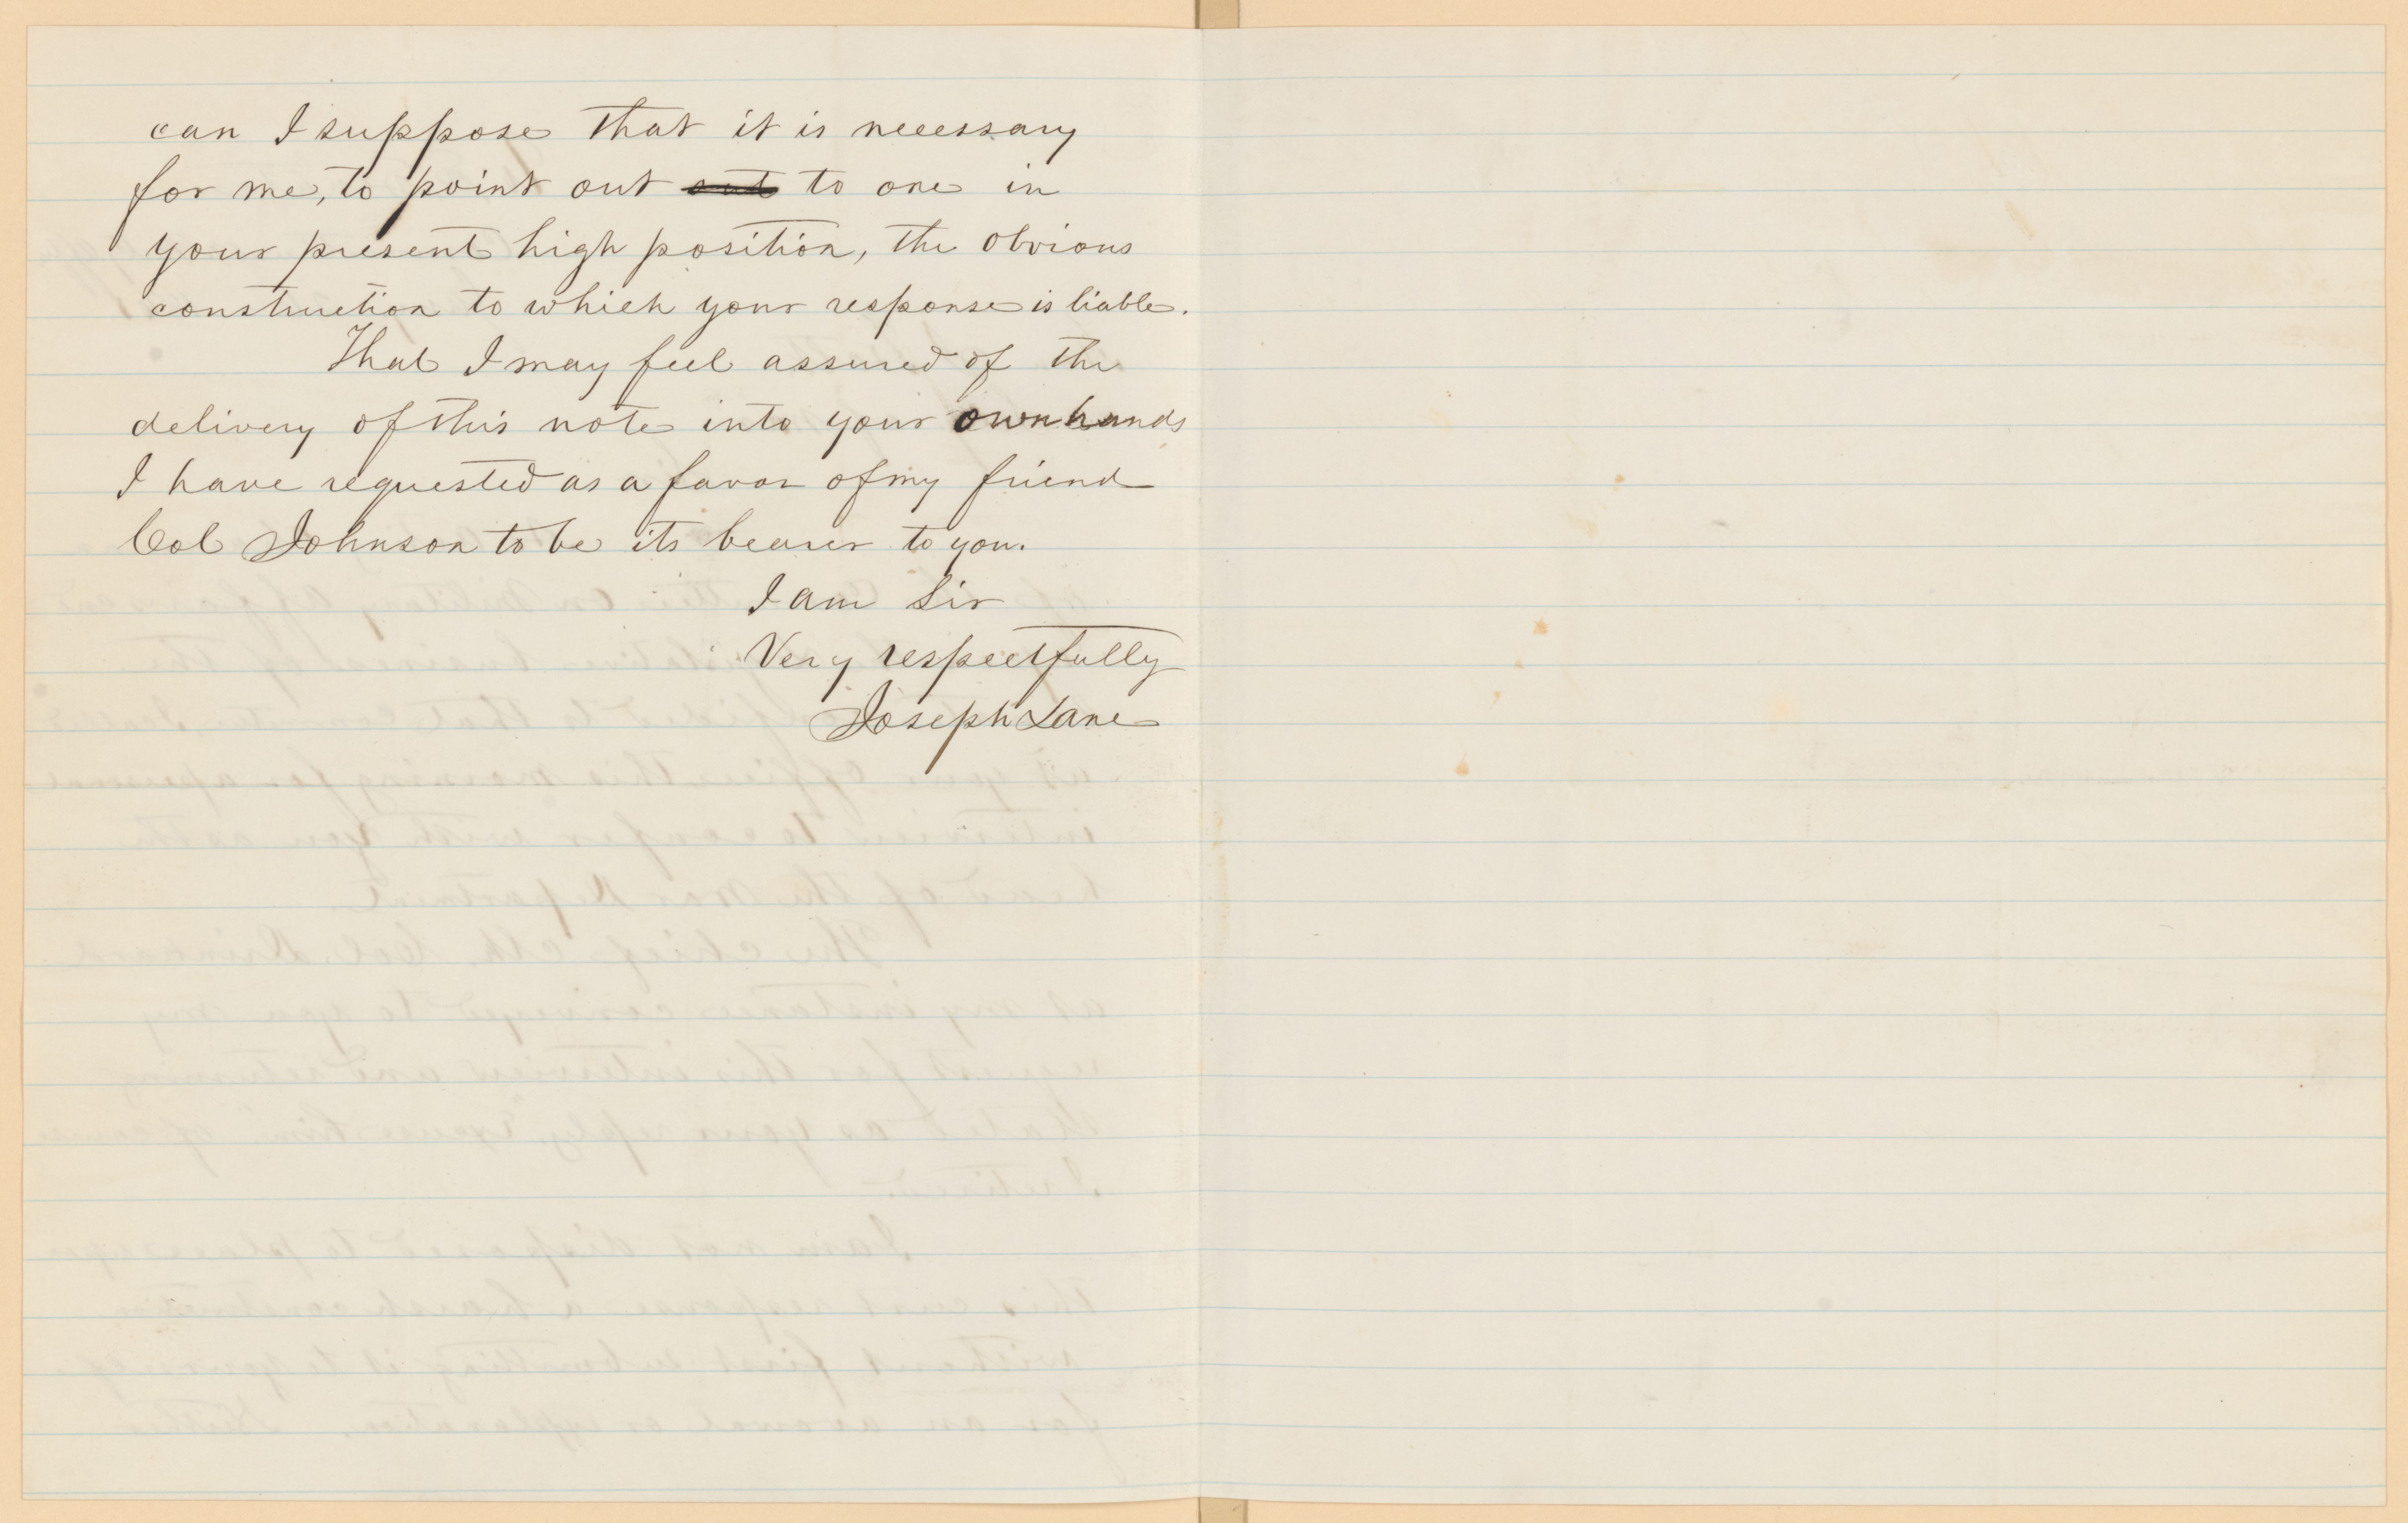 can I suppose that it is necessary
for me, to point out out to one in
your present high position, the obvious
construction to which your response is liable.
That I may feel assured of the
delivery of this note into your own hands
I have requested as a favor of my friend
Col Johnson to be its bearer to you.
I am Sir
Very respectfully
Joseph Lane